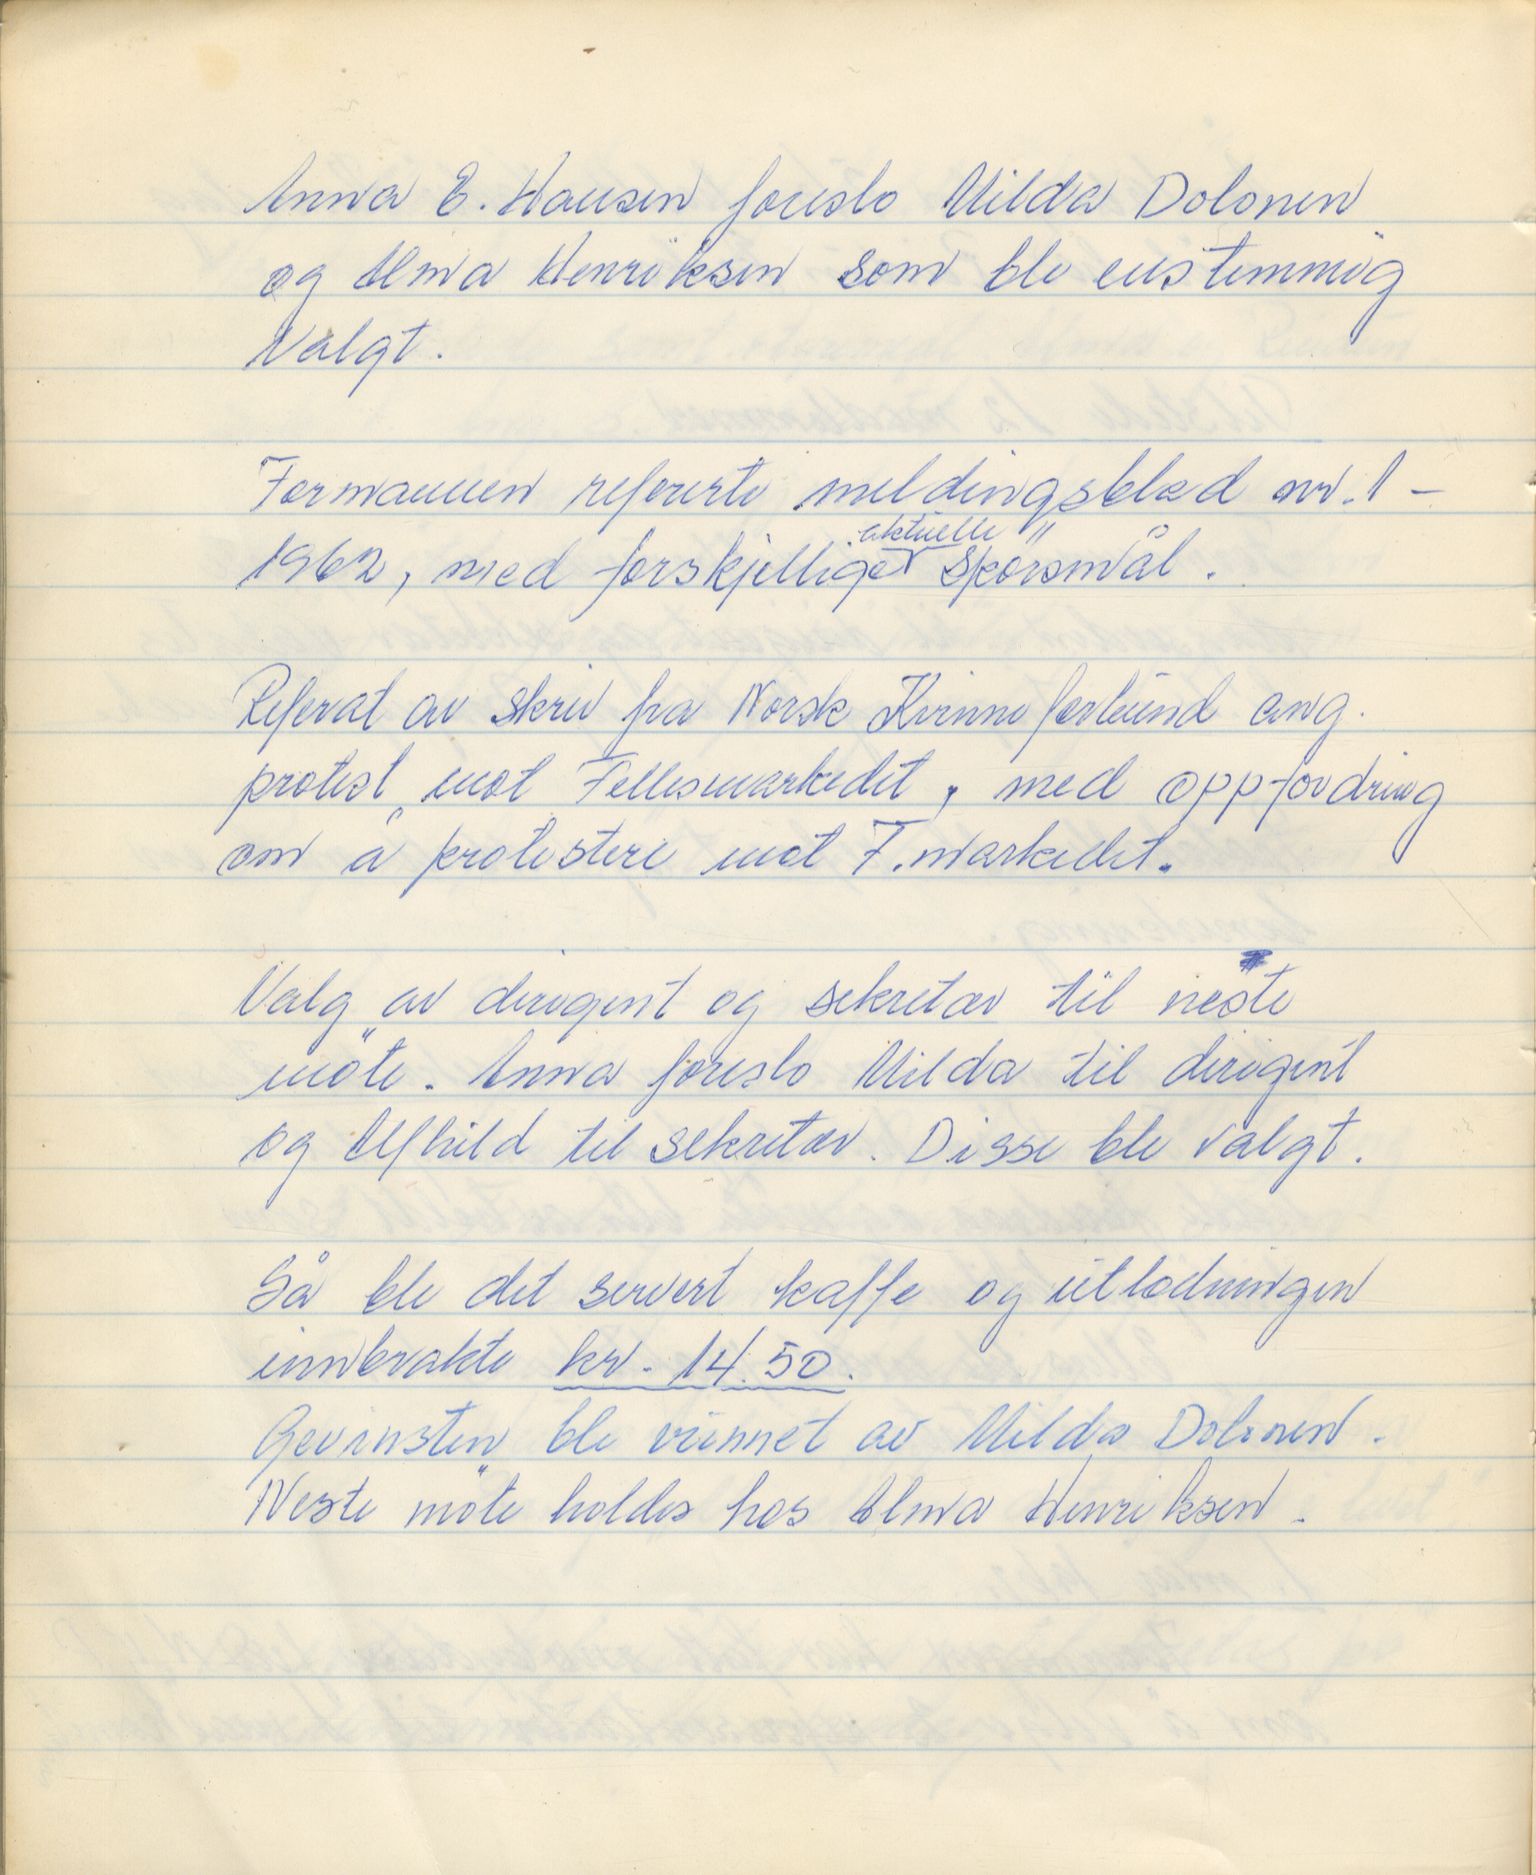 Anna E. Hansen foreslo Milda Dolonen
og Alma Henriksen som ble enstemmig
valgt.
Formannen refererte meldingsblad nr. 1 –
1962, med forskjellige aktuelle spörsmål.
Referat av skriv fra Norsk Kvinneforbund ang.
protest mot Fellesmarkedet, med oppfordring
om å protestere mot F.markedet.
Valg av dirigent og sekretær til neste
möte. Anna foreslo Milda til dirigent
og Alfhild til sekretær. Disse ble valgt.
Så ble det servert kaffe og utlodningen
innbrakte kr. 14.50.
Gevinsten ble vunnet av Milda Dolonen.
Neste möte holdes hos Alma Henriksen.